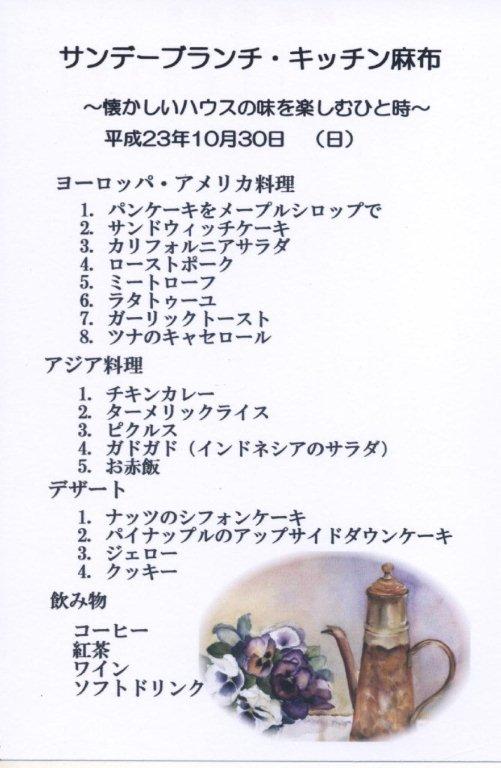 サンデーブランチ・キッチン麻布
～懐かしいハウスの味を楽しむひと時～
平成23年10月30日　（日）
ヨーロッパ・アメリカ料理
1. パンケーキをメープルシロップで
2. サンドウィッチケーキ
3. カリフォルニアサラダ
4. ローストポーク
5. ミートローフ
6. ラタトゥーユ
7. ガーリックトースト
8. ツナのキャセロール
アジア料理
1. チキンカレー
2. ターメリックライス
3. ピクルス
4. ガドガド（インドネシアのサラダ）
5. お赤飯
デザート
1. ナッツのシフォンケーキ
2. パイナップルのアップサイドダウンケーキ
3. ジェロー
4. クッキー
飲み物
コーヒー
紅茶
ワイン
ソフトドリンク